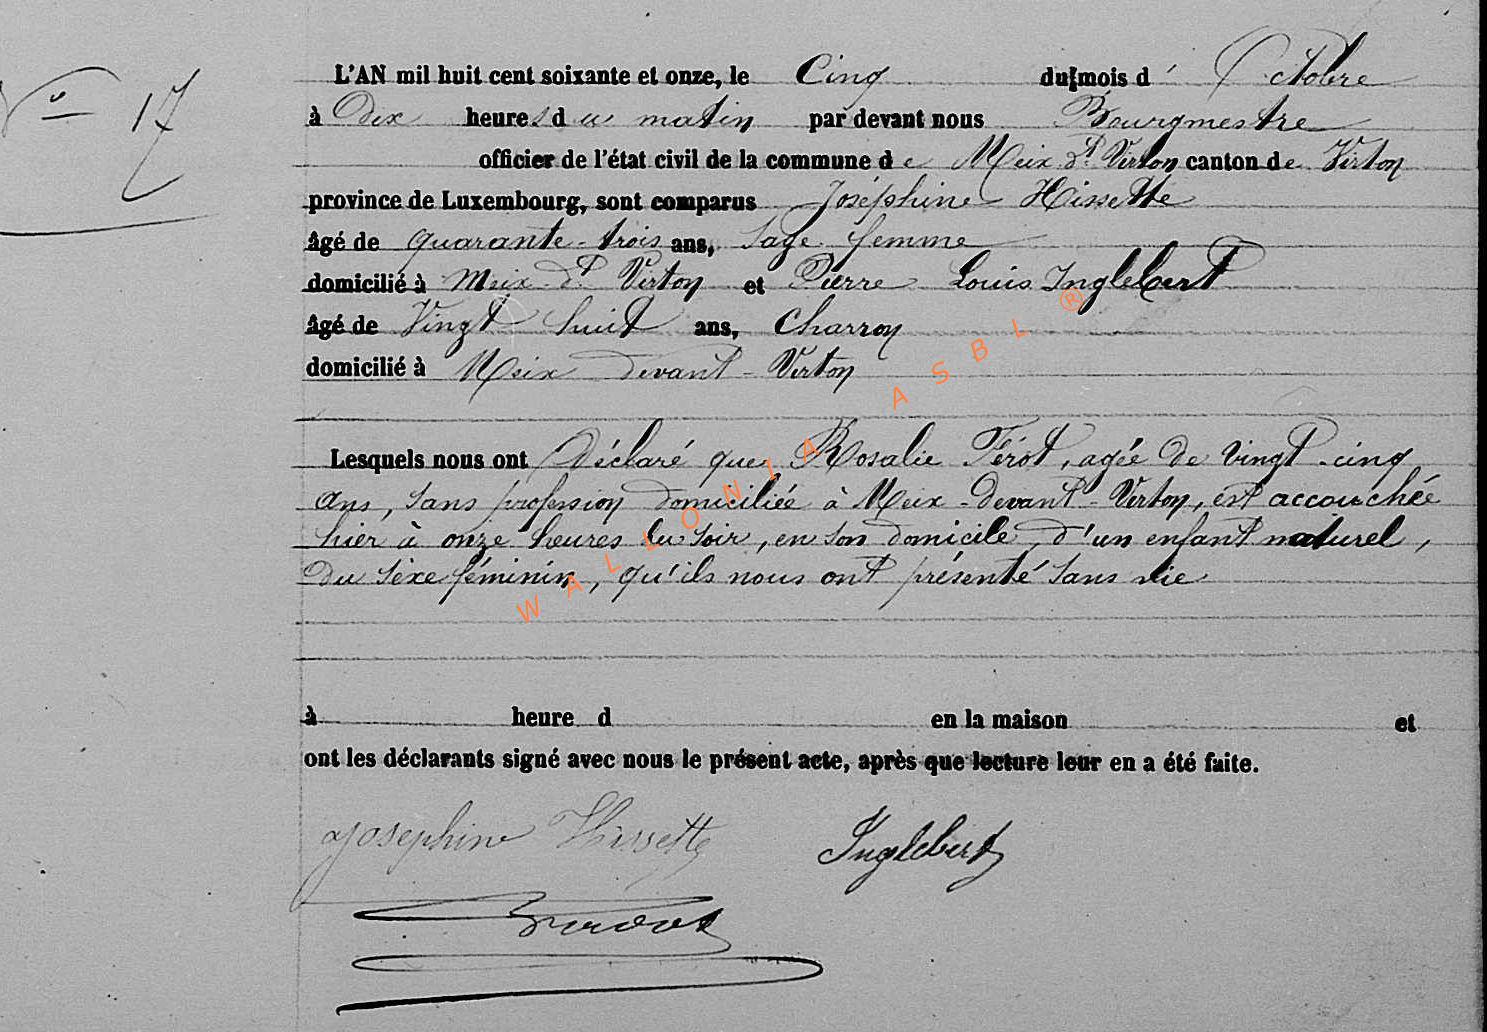 No 17
L'AN mil huit cent soixante et onze, le Cinq du mois d'Octobre
à Dix heures du matin par devant nous Bourgmestre
officier de l'état civil de la commune de Meix dt Virton canton de Virton
province de Luxembourg, sont comparus Joséphine Hissette
âgé de quarante-trois ans, Sage femme
domicilié à Meix dt Virton et Pierre Louis Inglebert
âgé de Vingt huit ans, Charron
domicilié à Meix Devant-Virton
Lesquels nous ont Déclaré que Rosalie Férot, agée de vingt-cinq
ans, sans profession domiciliée à Meix-Devant-Virton, est accouchée
hier à onze heures du soir, en son domicile, d'un enfant naturel,
du sèxe féminin, qu'ils nous ont présenté sans vie
à heure d en la maison et
ont les déclarants signé avec nous le présent acte, après que lecture leur en a été faite.
Josephine Hissette Inglebert
WALLONIA ASBL ®